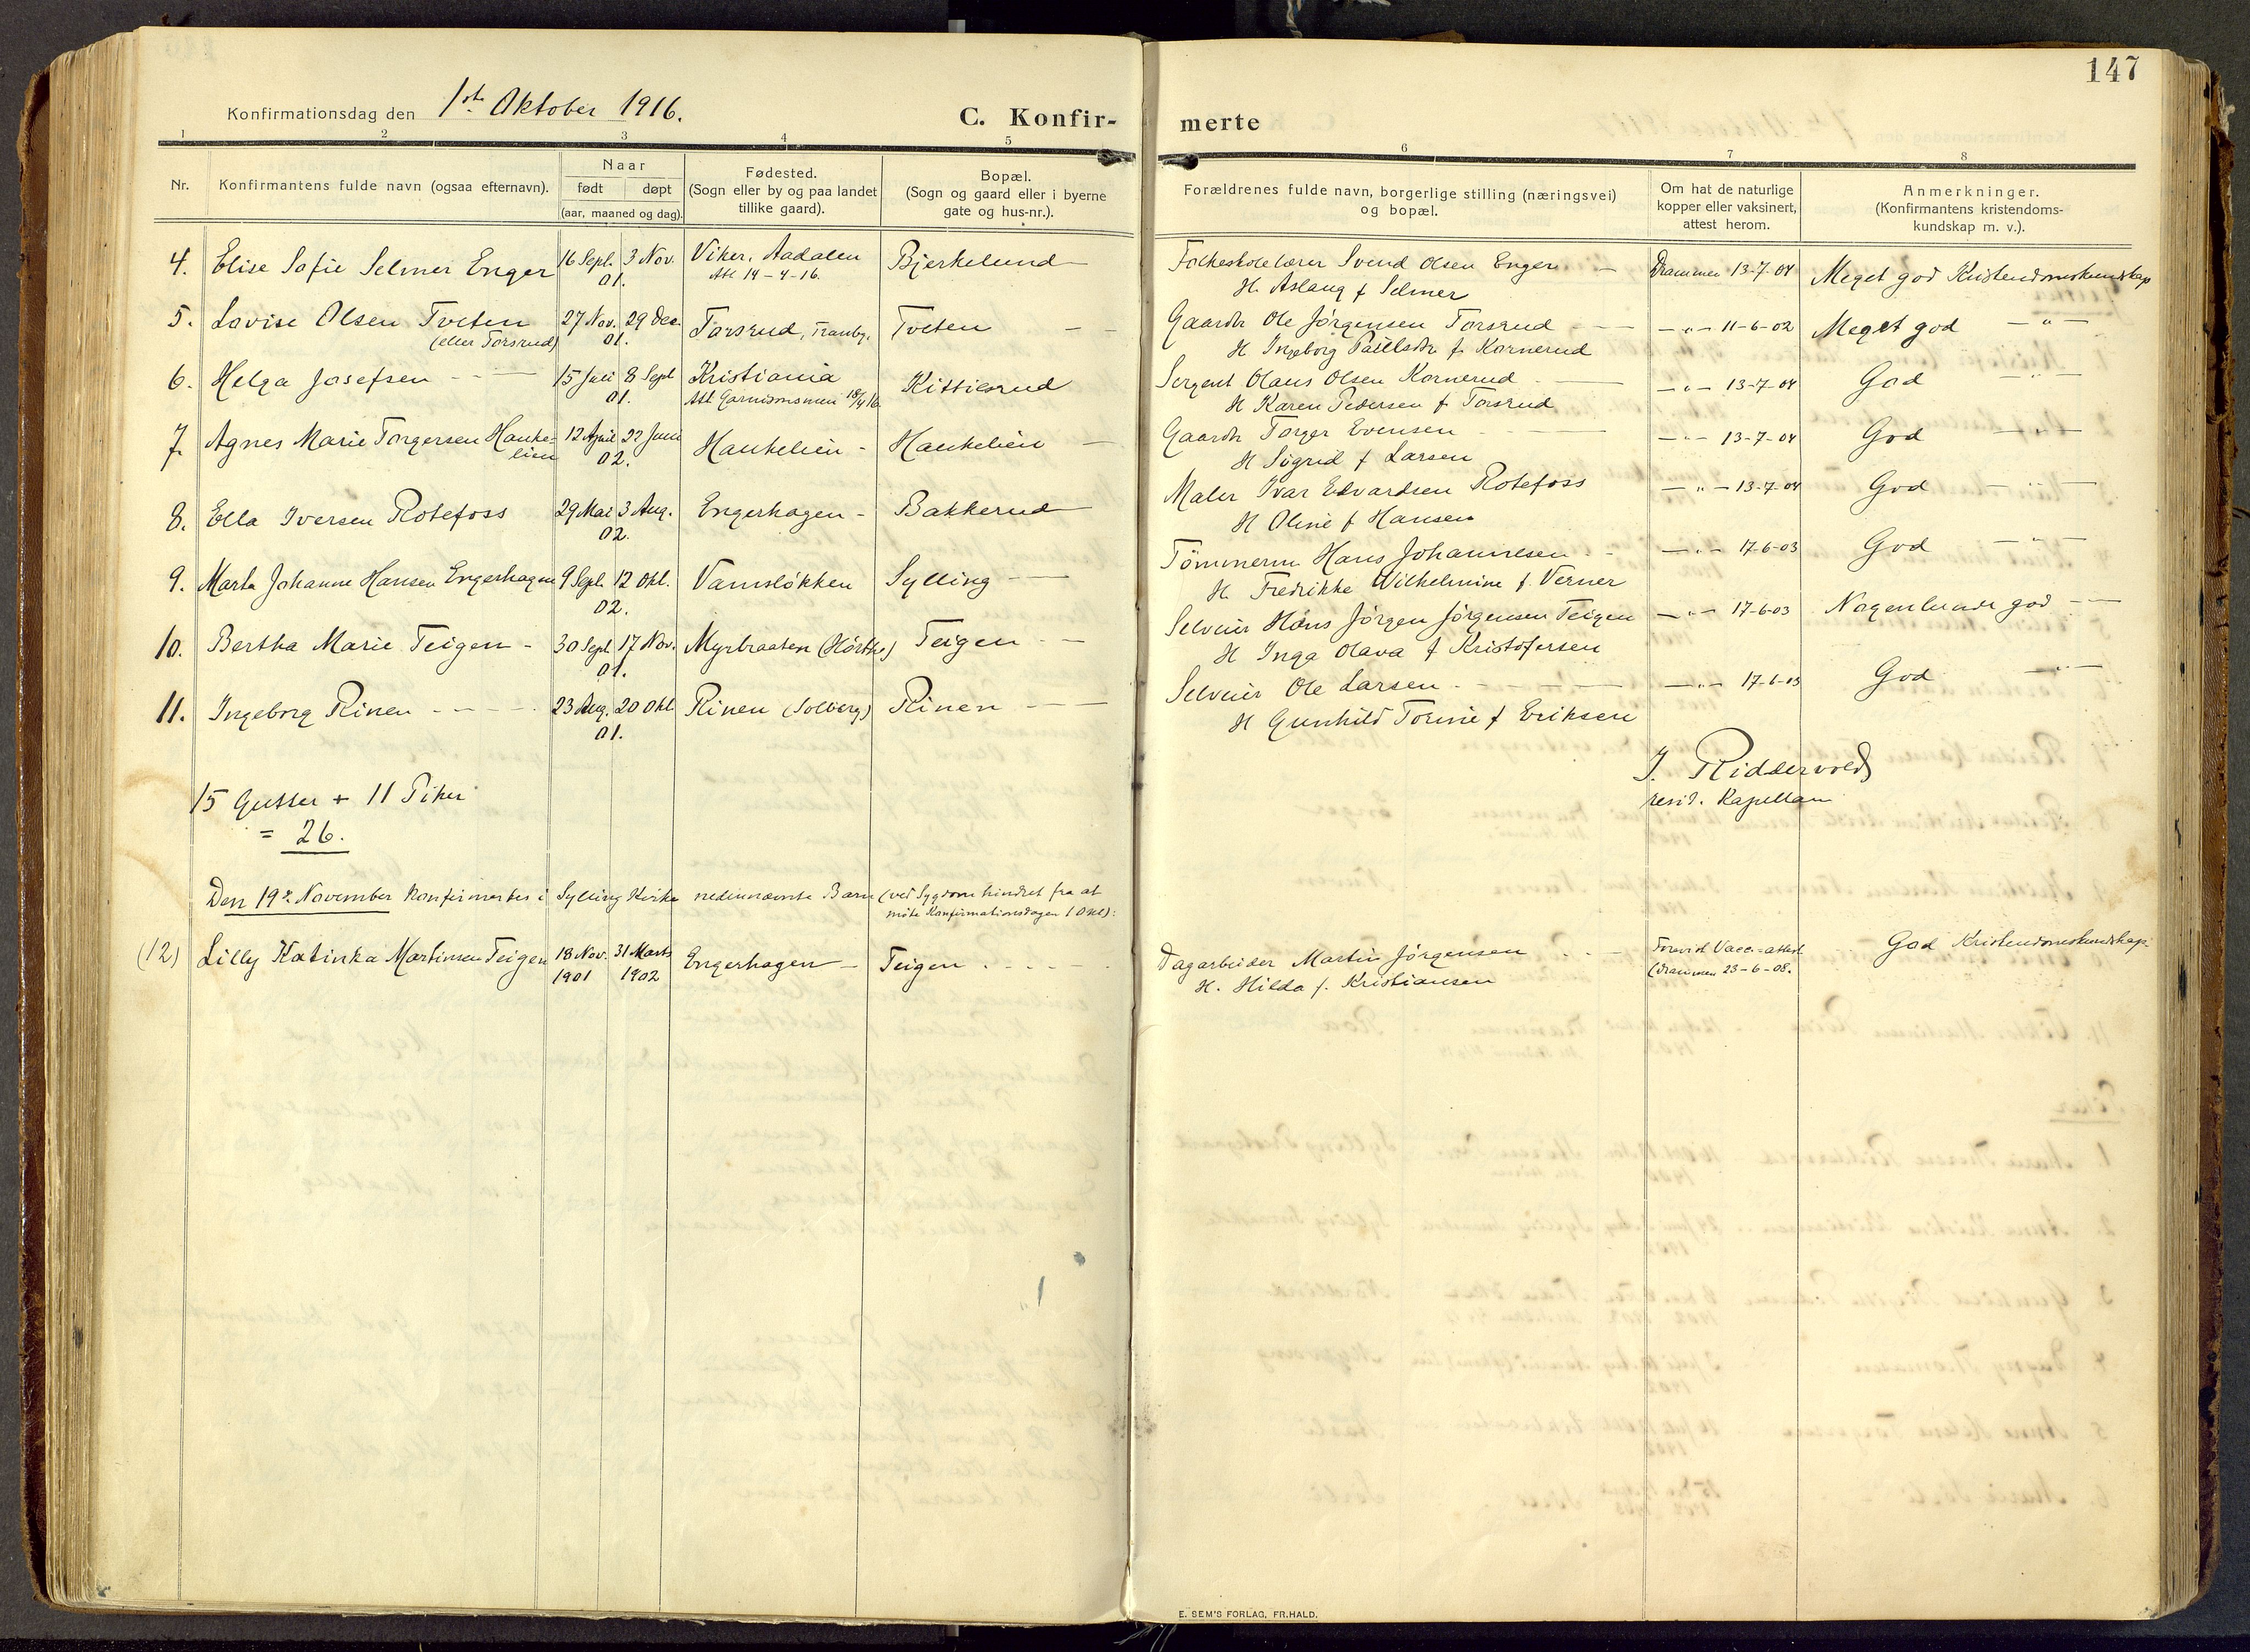 147
Konfirmationsdag den 1ste Oktober 1916.
C. Konfir-
merte
1 2 3 4 5 6 7 8
Nr.
Konfirmantens fulde navn (ogsaa efternavn).
Naar
født døpt
(aar, maaned og dag).
Fødested.
(Sogn eller by og paa landet
tillike gaard).
Bopæl.
(Sogn og gaard eller i byerne
gate og hus-nr.).
Forældrenes fulde navn, borgerlige stilling (næringsvei)
og bopæl.
Om hat de naturlige
kopper eller vaksinert,
attest herom.
Anmerkninger.
(Konfirmantens kristendoms-
kundskap m. v.).
4. Elise Sofie Selmer Enger 16 Sept. 3 Nov. Viker, Aadalen Bjerkelund Folkeskolelærer Svend Olsen Enger Drammen 13-7-04 Meget god Kristendomskundskap
01. Att 14-4-16. H. Aslaug f Selmer
5. Lovise Olsen Tveten 27 Nov. 29 Dec. Torsrud, Tranby. Tveten Gaardbr Ole Jørgensen Torsrud -"- 11-6-02 Meget god -"-
(eller Torsrud) 01. H Ingeborg Paulsdtr f. Kornerud
6. Helga Josefsen 15 Juli 8 Sept Kristiania Kittilsrud Sergent Olaus Olsen Kornerud -"- 13-7-04 God -"-
01. Att Garnisonsmen 18/4 16. H Karen Pedersen f Torsrud
7. Agnes Marie Torgersen Hauke- 12 April 22 Juni Haukelien Haukelien Gaardbr Torger Evensen -"- 13-7-04 God -"-
lien 02. H Sigrid f Larsen
8. Ella Iversen Rotefoss 29 Mai 3 Aug. Engerhagen Bakkerud Maler Ivar Edvardsen Rotefoss -"- 13-7-04 God -"-
02. H Oline f Hansen
9. Marta Johanne Hansen Engerhagen 9 Sept. 12 Okt. Vamsløkken Sylling Tømmerm Hans Johannesen -"- 17-6-03 God -"-
02. H. Fredrikke Wilhelmine f. Verner
10. Bertha Marie Teigen 30 Sept 17 Nov. Myrbraaten Teigen Selveier Hans Jørgen Jørgensen Teigen -"- 17-6-03 Nogenlunde god
01. H Inga Olava f Kristofersen
11. Ingeborg Rinen 23 Aug. 20 Okt. Rinen (Solberg) Rinen Selveier Ole Larsen -"- 17-6-03 God -"-
01. H Gunhild Torine f Eriksen
J. Riddervold
resid. Kapellan
15 Gutter + 11 Piker
= 26.
Den 19de November konfirmertes i Sylling Kirke nedennævnte Barn (ved Sygdom hindret fra at
møte Konfirmationsdagen 1 Okt):
(12) Lilly Katinka Martinsen Teigen 18 Nov. 31 Marts Engerhagen Teigen Dagarbeider Martin Jørgensen Forevist Vacc.-attest God Kristendomskundskap
1901 1902 H. Hilda f. Kristiansen (Drammen 23-6-08.
E. SEM'S FORLAG, FR.HALD.